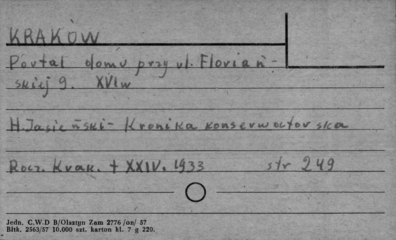 KRAKÓW
Portal domu przy ul. Floriań-
skiej 9. XVI w
H Jasieński - Kronika konserwatorska
Rocz. Krak. t XXIV. 1933 str 249
Jedn. C.W.D B/Olsztyn Zam 2776 /on/ 57
Bltk. 2563/57 10,000 szt. karton kl. 7 g 220.